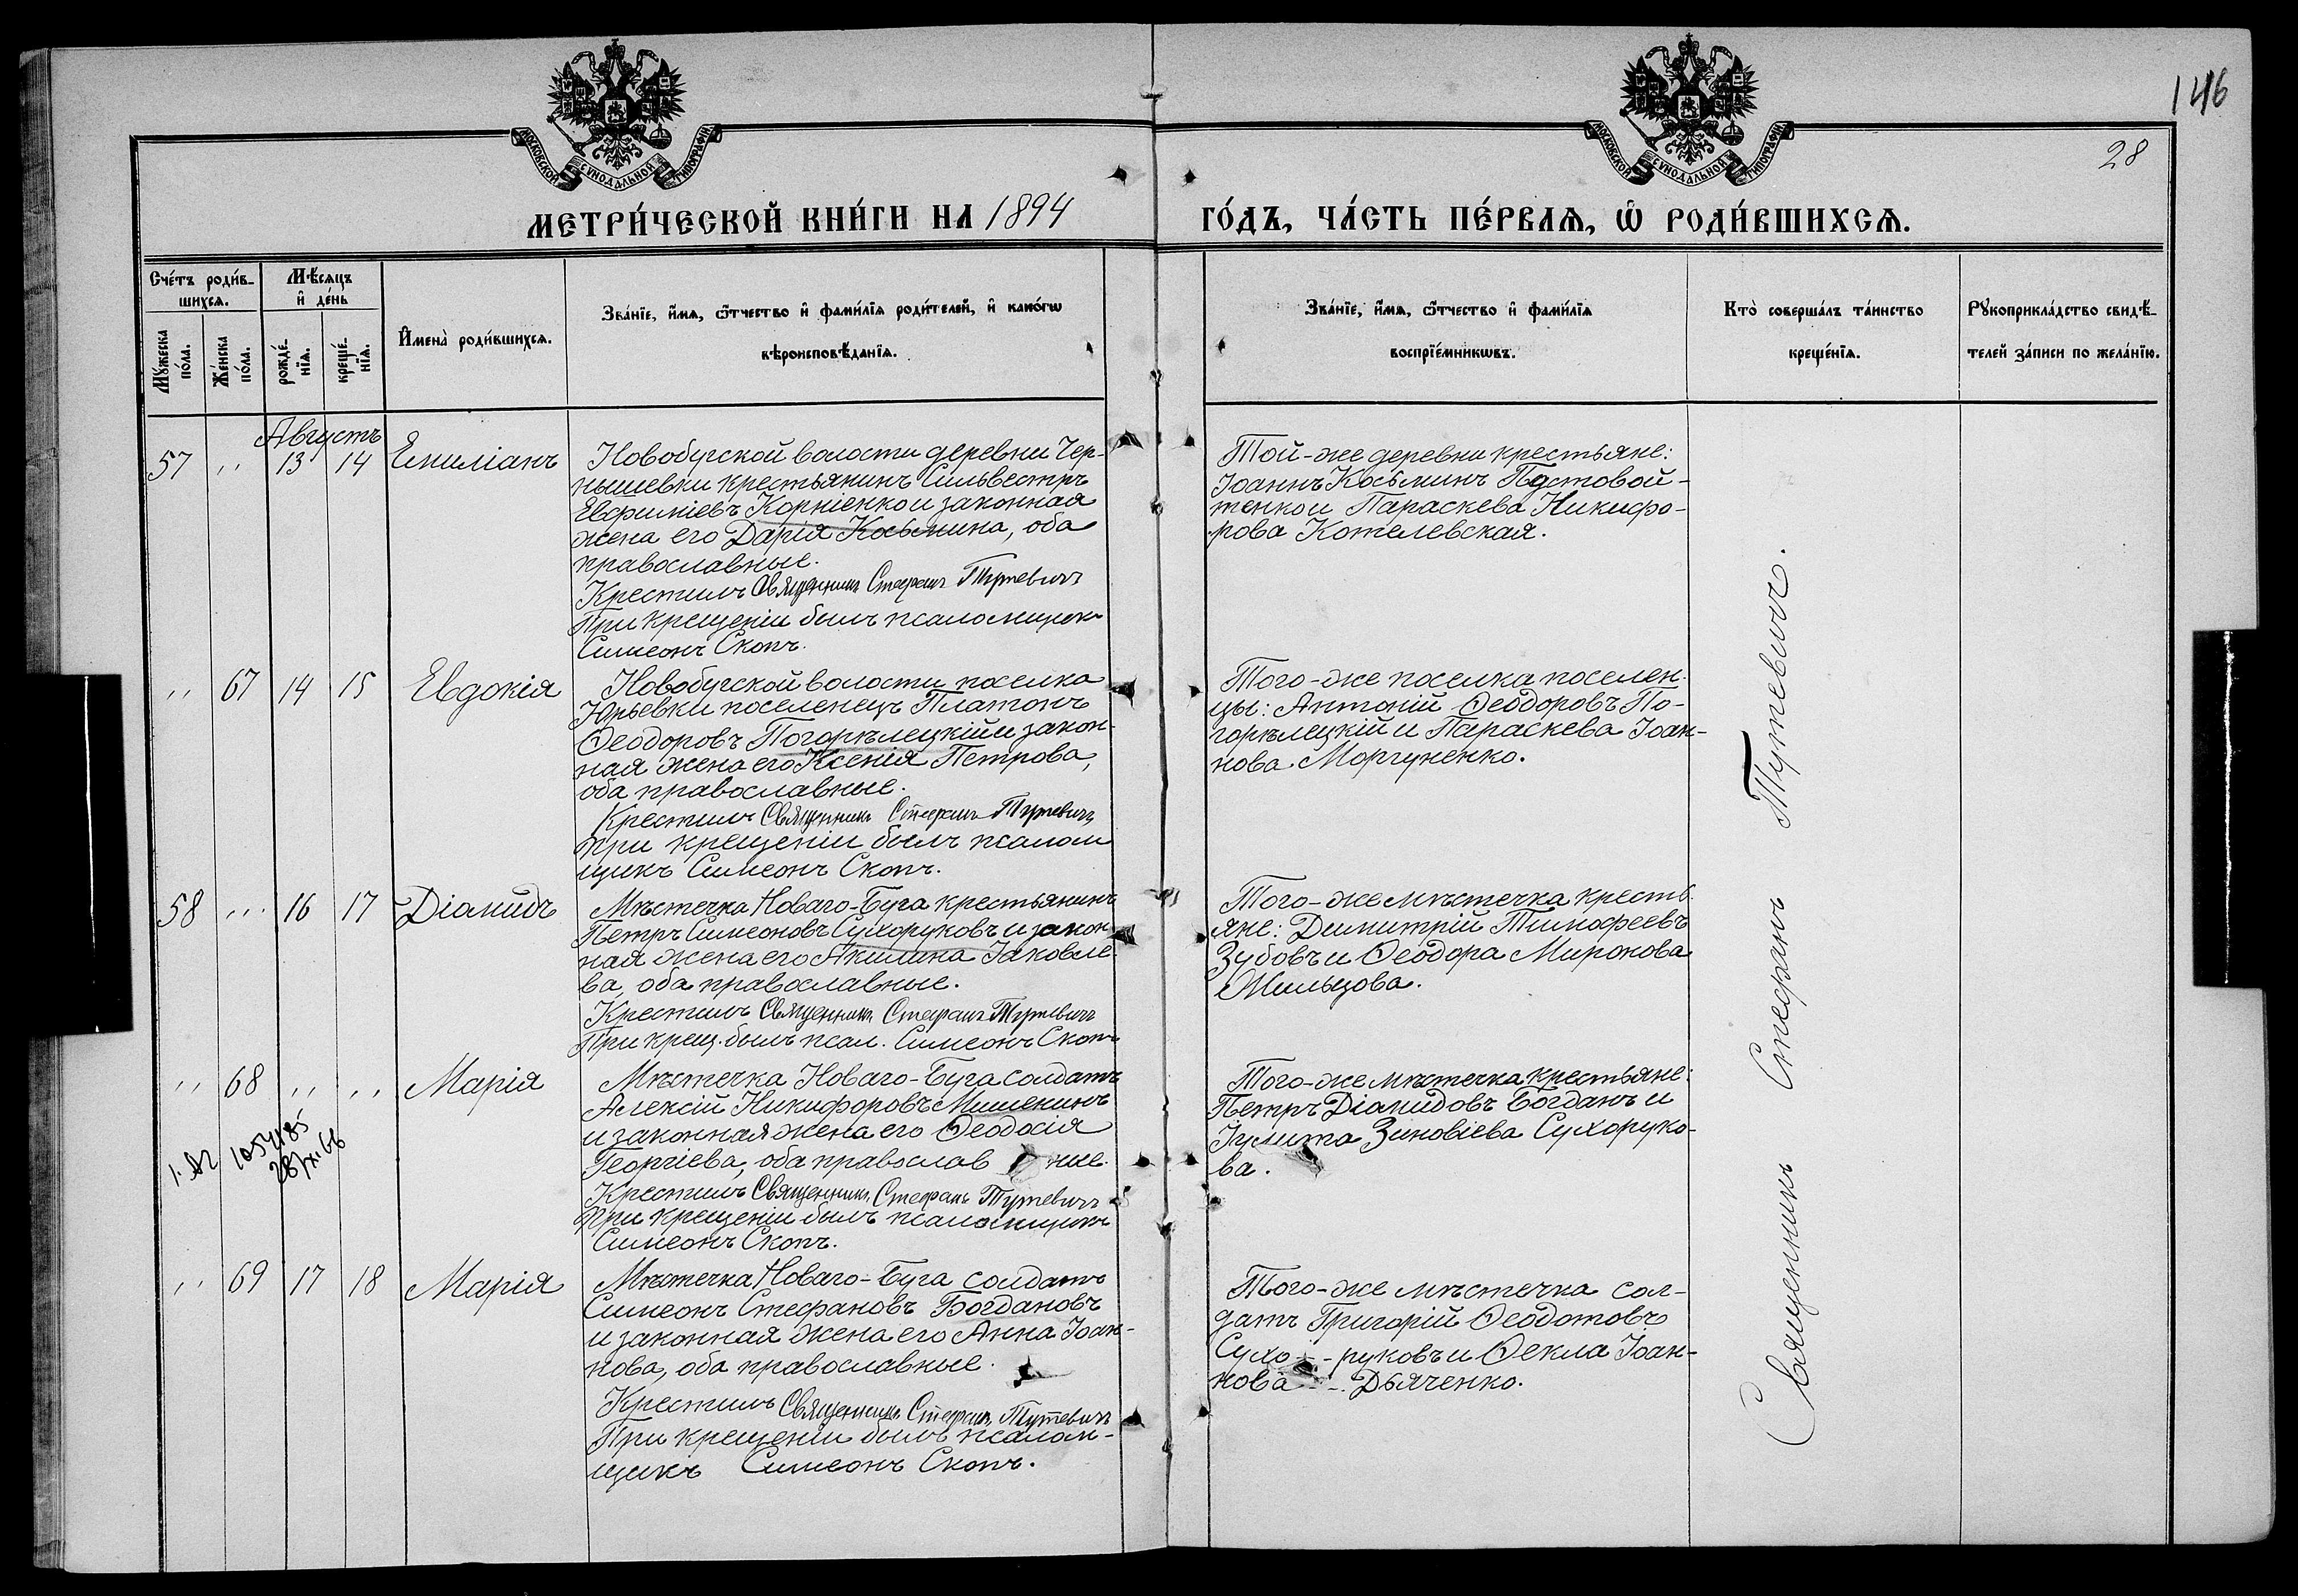 146
28
МОСКОВСКОЙ СУНОДАЛЬНОЙ ТИПОГРАФІИ
МОСКОВСКОЙ СУНОДАЛЬНОЙ ТИПОГРАФІИ
МЕТРИ́ЧЕСКОЙ КНИ́ГИ НА 1894 ГО́ДЪ, ЧА́СТЬ ПЕ́РВАѦ, Ѡ҆ РОДИ́ВШИХСѦ.
Сче́тъ роди́в-
шихсѧ.
Мꙋ́жеска по́ла.
Же́нска по́ла.
Мѣ́сѧцъ
и҆ де́нь
рожде́-
нїѧ.
креще́-
нїѧ.
И҆мена̀ роди́вшихсѧ.
Зва́нїе, и҆́мѧ, ѻ҆́тчество и҆ фами́лїѧ роди́телей, и҆ како́гѡ
вѣроисповѣ́данїѧ.
Зва́нїе, и҆́мѧ, ѻ҆́тчество и҆ фами́лїѧ
воспрїе́мникѡвъ.
Кто̀ соверша́лъ та́инство
креще́нїѧ.
Рꙋкоприкла́дство свидѣ́-
телей за́писи по жела́нїю.
Августъ
57 " 13 14 Емиліанъ
Новобугской волости деревни Чер-
нышевки крестьянинъ Сильвестръ
Евфиміевъ Корніенко и законная
жена его Дарія Косьмина, оба
православные.
Крестилъ Священникъ Стефанъ Тутевичъ
При крещеніи былъ псаломщикъ
Симеонъ Скопъ.
Той-же деревни крестьяне:
Іоаннъ Косьминъ Пустовой-
тенко и Параскева Никифо-
рова Котелевская.
" 67 14 15 Евдокія
Новобугской волости поселка
Юрьевки поселенецъ Платонъ
Ѳеодоровъ Погорѣлецкій и закон-
ная жена его Ксенія Петрова,
оба православные.
Крестилъ Священникъ Стефанъ Тутевичъ
При крещеніи былъ псалом
щикъ Симеонъ Скопъ.
Того-же поселка поселен-
цы: Антоній Ѳеодоровъ По-
горѣлецкій и Параскева Іоан-
нова Моргуненко.
58 " 16 17 Діамидъ
Мѣстечка Новаго-Буга крестьянинъ
Петръ Симеоновъ Сухоруковъ и закон-
ная жена его Акилина Іаковле-
ва, оба православные.
Крестилъ Священникъ Стефанъ Тутевичъ
При крещ. былъ псал. Симеонъ Скопъ
Того-же мѣстечка кресть-
яне: Димитрій Тимофеевъ
Зубовъ и Ѳеодора Миронова
Мильцова.
" 68 " " Марія
Мѣстечка Новаго-Буга солдатъ
Алексій Никифоровъ Мишенинъ
и законная жена его Ѳеодосія
Георгіева, оба православ ные.
Крестилъ Священникъ Стефанъ Тутевичъ
При крещеніи былъ псаломщикъ
Симеонъ Скопъ.
Того-же мѣстечка крестьяне:
Петръ Діамидовъ Богданъ и
Іулита Зиновіева Сухоруко-
ва.
" 69 17 18 Марія
Мѣстечка Новаго-Буга солдатъ
Симеонъ Стефановъ Богдановъ
и законная жена его Анна Іоан-
нова, оба православные.
Крестилъ Священникъ Стефанъ Тутевичъ
При крещеніи былъ псалом-
щикъ Симеонъ Скопъ.
Того-же мѣстечка сол-
датъ Григорій Ѳеодотовъ
Сухо - - руковъ и Ѳекла Іоан-
нова - - Дьяченко.
Священникъ Стефанъ Тутевичъ.